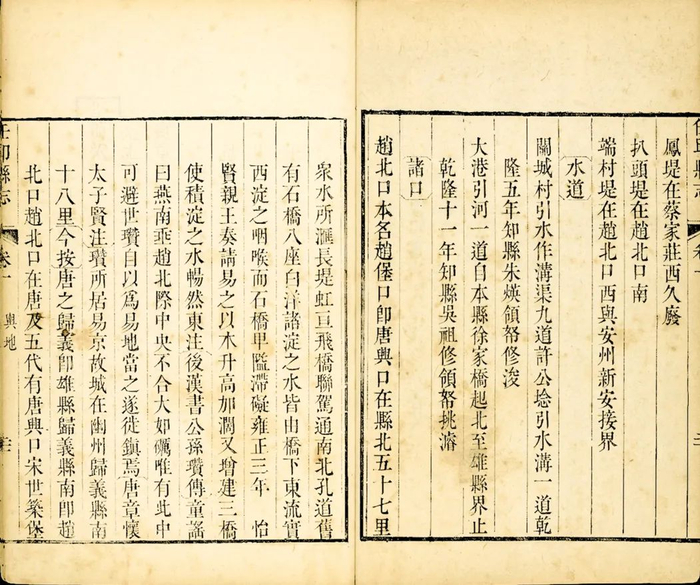 鳳堤在蔡家莊西久廢
扒頭堤在趙北口南
端村堤在趙北口西與安州新安接界
水道
關城村引水作溝渠九道許公埝引水溝一道乾
隆五年知縣朱煐領帑修浚
大港引河一道自本縣徐家橋起北至雄縣界止
乾隆十一年知縣吳祖修領帑挑濬
諸口
趙北口本名趙堡口卽唐興口在縣北五十七里
衆水所滙長堤虹亘飛橋聯駕通南北孔道舊
有石橋八座白洋諸淀之水皆由橋下東流實
西淀之咽喉而石橋卑隘滯礙雍正三年 怡
賢親王奏請易之以木升高加濶又增建三橋
使積淀之水暢然東注後漢書公孫瓚傳童謠
曰燕南垂趙北際中央不合大如礪唯有此中
可避世瓚自以爲易地當之遂徙鎮焉唐章懷
太子賢注瓚所居易京故城在幽州歸義縣南
十八里今按唐之歸義卽雄縣歸義縣南卽趙
北口趙北口在唐及五代有唐興口宋世築堡
縣志
卷一
輿地